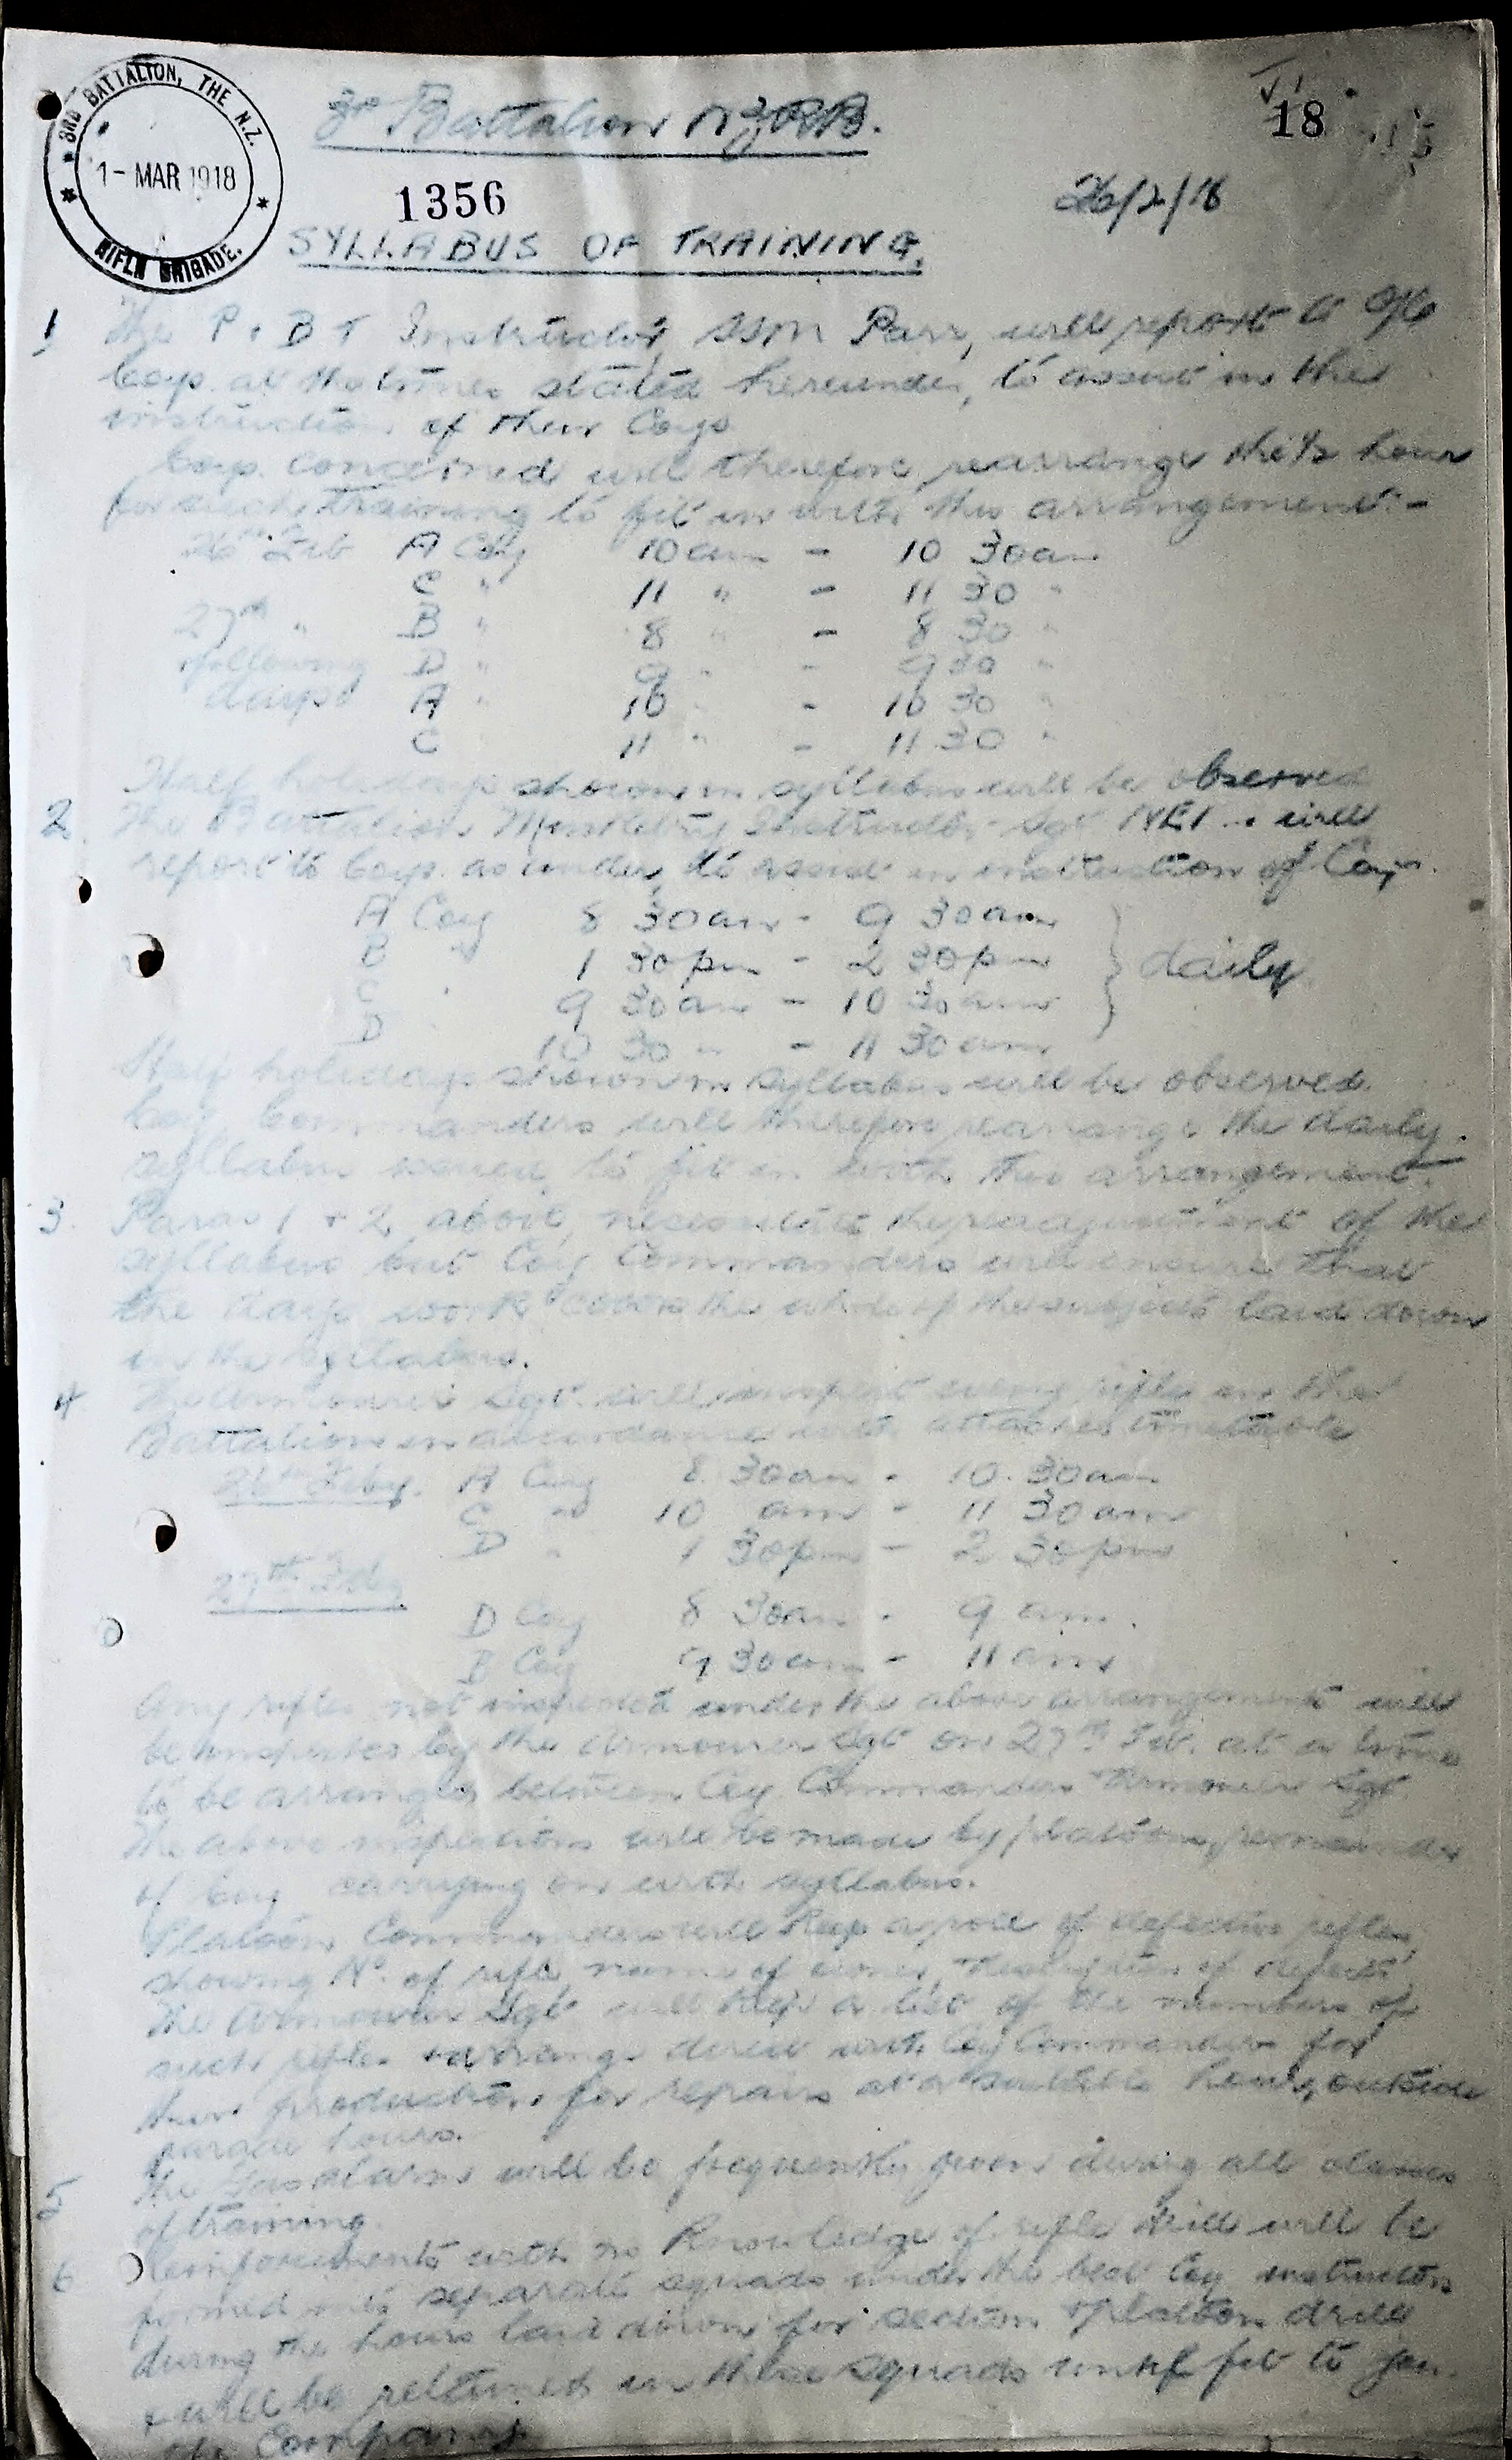 3RD BATTALION, THE N.Z.
1 - MAR 1918
RIFLE BRIGADE.
3rd Battalion NZRB.
18
1356
26/2/18
SYLLABUS OF TRAINING.
1 The P & B T Instructor, SSM Parr, will report to
Coys. at the times stated hereunder, to assist in the
instruction of their Coys
Coys. concerned will therefore rearrange the ½ hour
for such training to fit in with this arrangement:-
26th Feb A Coy 10 am - 10 30 am
C " 11 " - 11 30 "
27th " B " 8 " - 8 30 "
following D " 9 " - 9 30 "
days A " 10 " - 10 30 "
C " 11 " - 11 30 "
Half holidays shown in syllabus will be observed
2. The Battalion Musketry Instructor Sgt will
report to Coys. as under, to assist in instruction of Coys.
A Coy 8 30 am - 9 30 am
B " 1 30 pm - 2 30 pm } daily
C " 9 30 am - 10 30 am
D 10 30 " - 11 30 am
Half holidays shown in syllabus will be observed.
Coy Commanders will therefore rearrange the daily
syllabus issued, to fit in with this arrangement.
3. Paras 1 & 2 above, necessitate the readjustment of the
syllabus but Coy Commanders will ensure that
the days work covers the whole of the subjects laid down
in the syllabus.
4. The Armourer Sgt. will inspect every rifle in the
Battalion in accordance with attached timetable
26th Feby. A Coy 8 30 am - 10. 30 am
C " 10 am - 11 30 am
D " 1 30 pm - 2 30 pm
27th Feby
D Coy 8 30 am - 9 am.
B Coy 9 30 am - 11 am
Any rifles not inspected under the above arrangement will
be inspected by the Armourer Sgt on 27th Feb. at a time
to be arranged between Coy Commanders & Armourer Sgt
The above inspections will be made by platoons, remainder
of Coy carrying on with syllabus.
Platoon Commanders will keep a roll of defective rifles,
showing No. of rifle, name of owner, & description of defects.
The Armourer Sgt will keep a list of the numbers of
such rifles & arrange direct with Coy Commanders for
their production for repairs at a suitable hour, outside
parade hours.
5 The Gas Alarm will be frequently given during all classes
of training.
6 Reinforcements with no knowledge of rifle drill will be
formed into separate squads under the best Coy instructors
during the hours laid down for section & platoon drill
& will be retained in these squads until fit to join
the Company